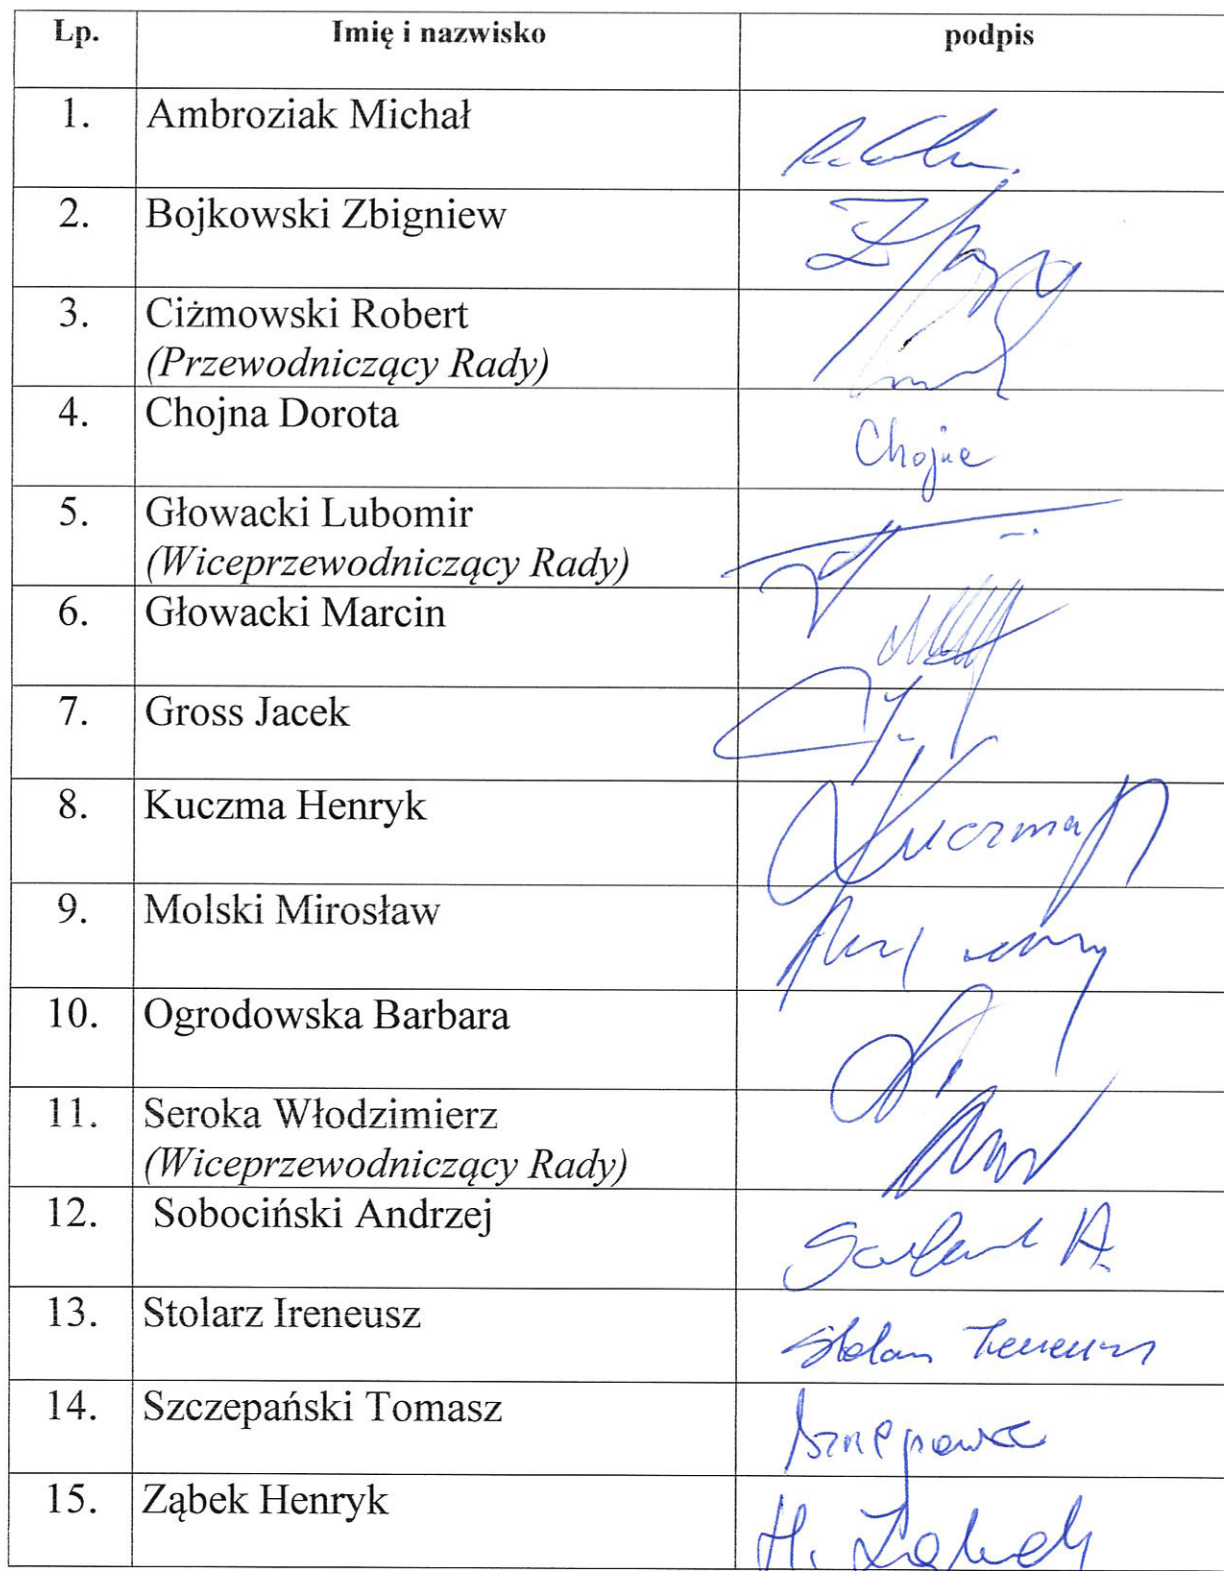 Lp. Imię i nazwisko podpis
1. Ambroziak Michał
2. Bojkowski Zbigniew
3. Ciżmowski Robert
(Przewodniczący Rady)
4. Chojna Dorota Chojna
5. Głowacki Lubomir
(Wiceprzewodniczący Rady)
6. Głowacki Marcin
7. Gross Jacek
8. Kuczma Henryk Kuczma
9. Molski Mirosław
10. Ogrodowska Barbara
11. Seroka Włodzimierz
(Wiceprzewodniczący Rady)
12. Sobociński Andrzej
13. Stolarz Ireneusz Stolarz Ireneusz
14. Szczepański Tomasz
15. Ząbek Henryk H. Ząbek